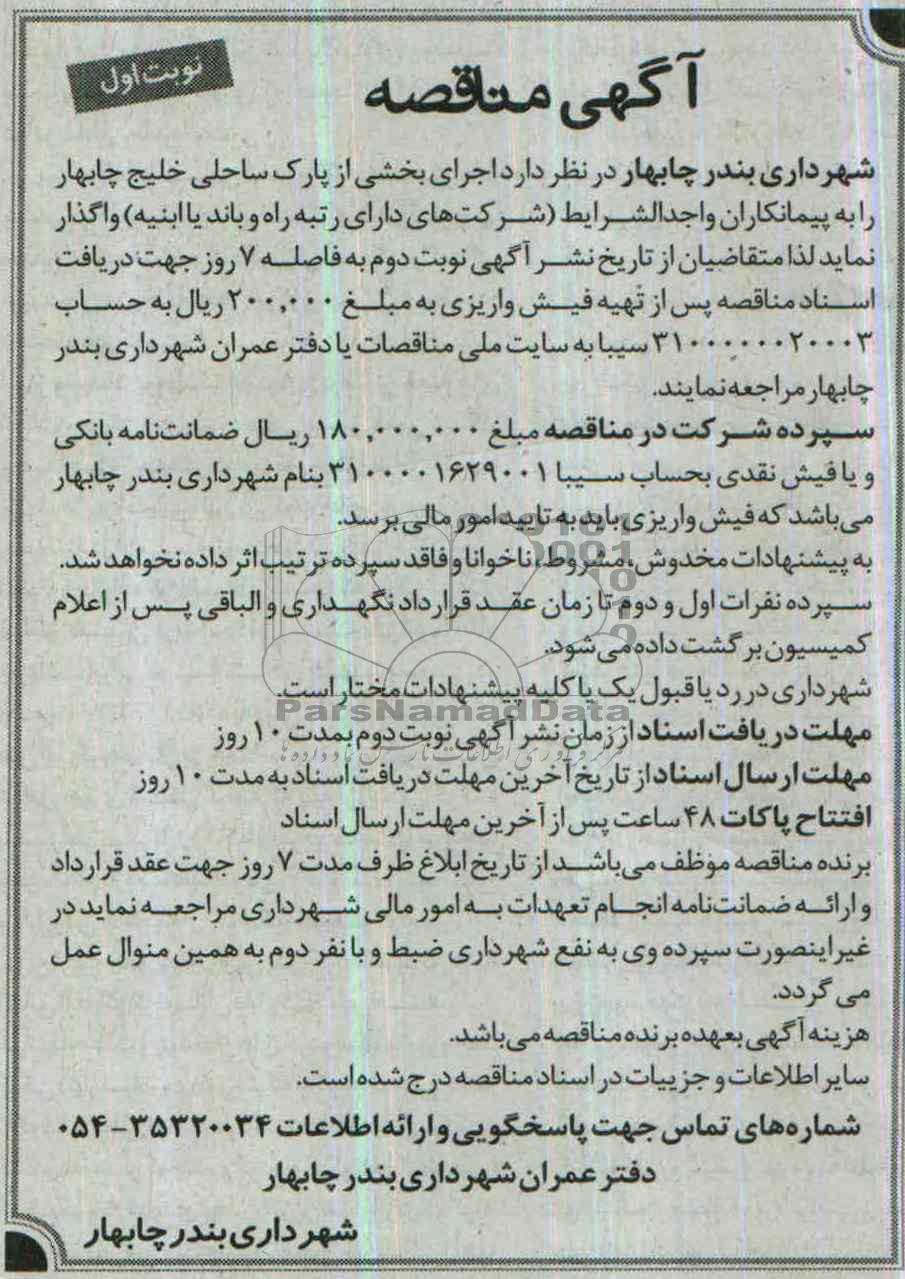 نوبت اول
آگهی مناقصه
شهرداری بندر چابهار در نظر دارد اجرای بخشی از پارک ساحلی خلیج چابهار
را به پیمانکاران واجدالشرایط (شرکت‌های دارای رتبه راه و باند یا ابنیه) واگذار
نماید لذا متقاضیان از تاریخ نشر آگهی نوبت دوم به فاصله ۷ روز جهت دریافت
اسناد مناقصه پس از تهیه فیش واریزی به مبلغ ۲۰۰,۰۰۰ ریال به حساب
سیبا به سایت ملی مناقصات یا دفتر عمران شهرداری بندر
چابهار مراجعه نمایند.
سپرده شرکت در مناقصه مبلغ ۱۸۰,۰۰۰,۰۰۰ ریال ضمانت‌نامه بانکی
و یا فیش نقدی بحساب سیبا ۳۱۰۰۰۰۱۶۲۹۰۰۱ بنام شهرداری بندر چابهار
می‌باشد که فیش واریزی باید به تایید امور مالی برسد.
به پیشنهادات مخدوش، مشروط، ناخوانا و فاقد سپرده ترتیب اثر داده نخواهد شد.
سپرده نفرات اول و دوم تا زمان عقد قرارداد نگهداری و الباقی پس از اعلام
کمیسیون برگشت داده می‌شود.
شهرداری در رد یا قبول یک یا کلیه پیشنهادات مختار است.
ParsNamadData
مهلت دریافت اسناد از زمان نشر آگهی نوبت دوم بمدت ۱۰ روز
مهلت ارسال اسناد از تاریخ آخرین مهلت دریافت اسناد به مدت ۱۰ روز
افتتاح پاکات ۴۸ ساعت پس از آخرین مهلت ارسال اسناد
برنده مناقصه موظف می‌باشد از تاریخ ابلاغ ظرف مدت ۷ روز جهت عقد قرارداد
و ارائه ضمانت‌نامه انجام تعهدات به امور مالی شهرداری مراجعه نماید در
غیر اینصورت سپرده وی به نفع شهرداری ضبط و با نفر دوم به همین منوال عمل
می گردد.
هزینه آگهی بعهده برنده مناقصه می‌باشد.
سایر اطلاعات و جزییات در اسناد مناقصه درج شده است.
شماره‌های تماس جهت پاسخگویی و ارائه اطلاعات ۳۵۳۲۰۰۳۴-۰۵۴
دفتر عمران شهرداری بندر چابهار
شهرداری بندر چابهار